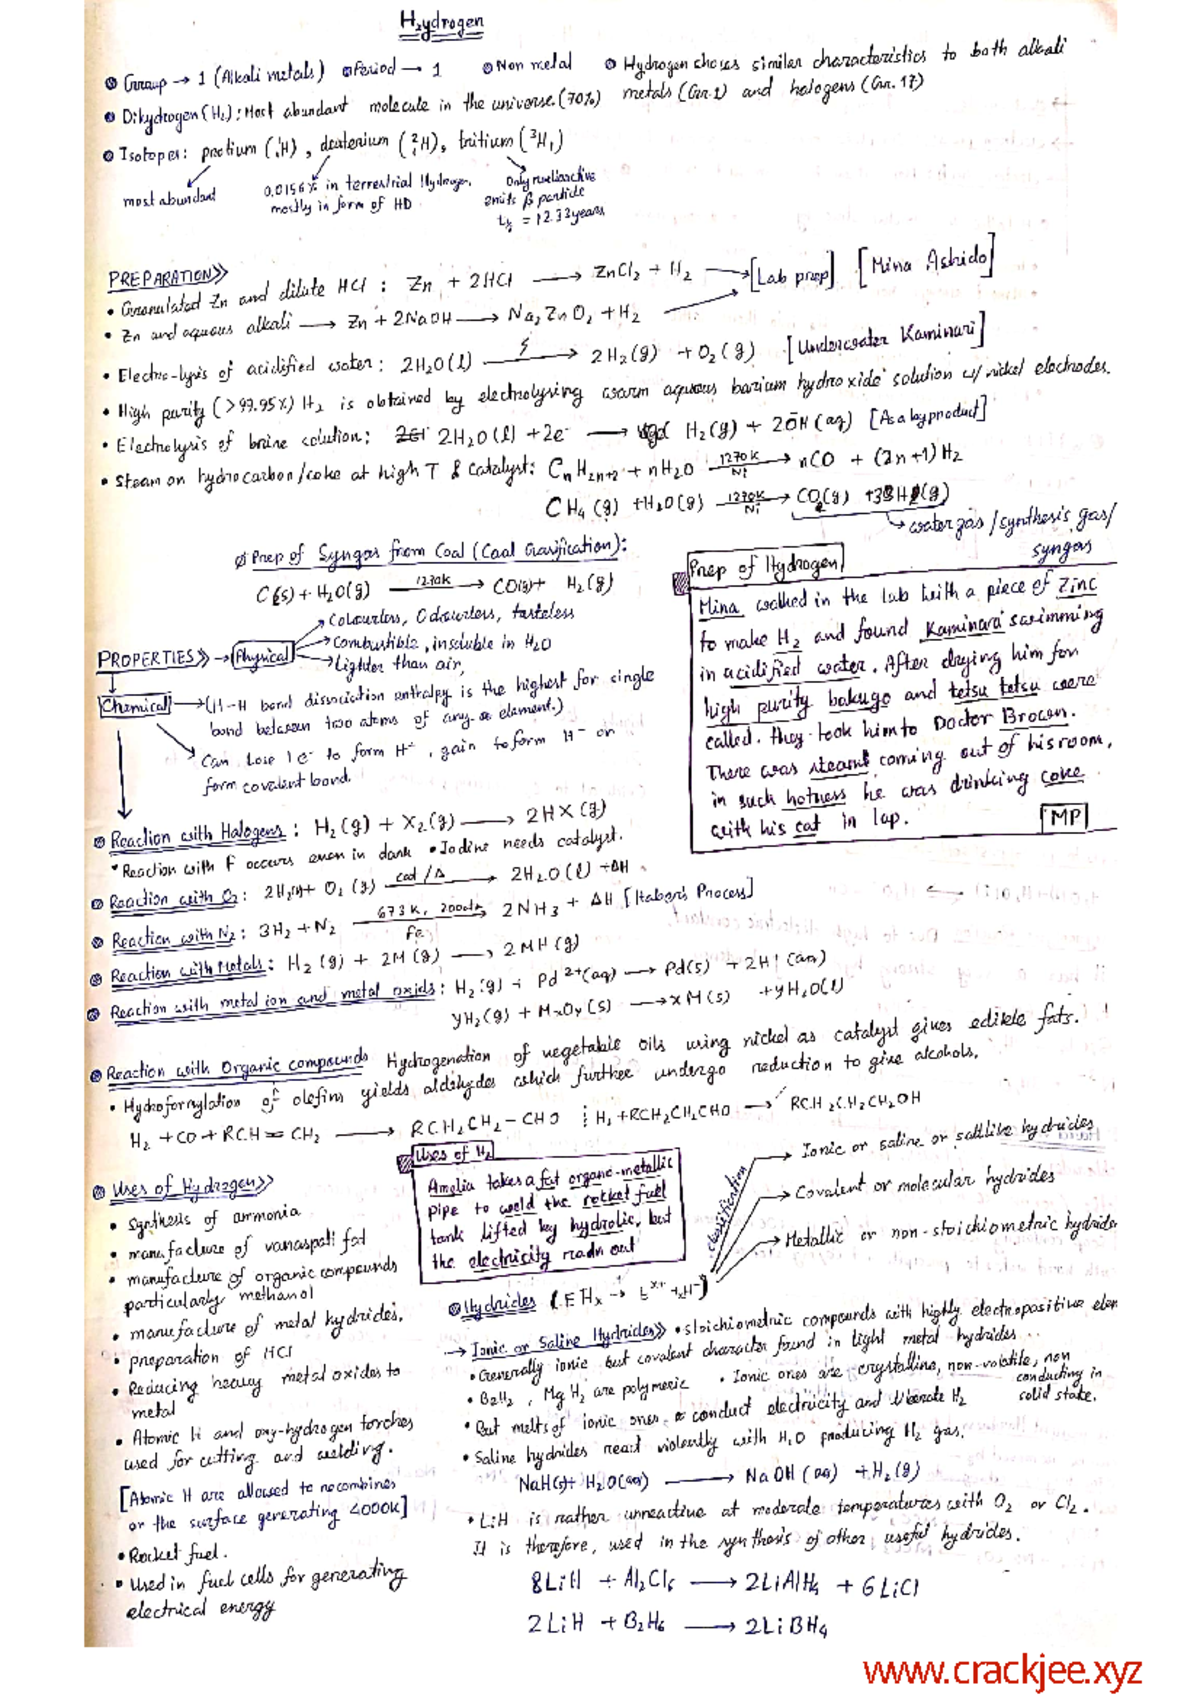 Hydrogen
Group → 1 (Alkali metals) Period → 1 Non metal Hydrogen shows similar characteristics to both alkali
metals (Gr. 1) and halogens (Gr. 17)
Dihydrogen (H₂) : Most abundant molecule in the universe. (70%)
Isotopes: protium (¹₁H), deuterium (²₁H), tritium (³H₁)
most abundant
0.0156% in terrestrial Hydrogen.
mostly in form of HD
Only radioactive
emits β particle
t½ = 12.33 years
PREPARATION>>
• Granulated Zn and dilute HCl : Zn + 2HCl → ZnCl₂ + H₂ → [Lab prep] [Mina Ashido]
• Zn and aqueous alkali → Zn + 2NaOH → Na₂ZnO₂ + H₂
• Electro-lysis of acidified water: 2H₂O(l) → 2H₂(g) + O₂(g) [Underwater Kaminari]
• High purity (>99.95%) H₂ is obtained by electrolysing warm aqueous barium hydroxide solution w/ nickel electrodes.
• Electrolysis of brine solution: 2H₂O(l) + 2e⁻ → H₂(g) + 2OH(aq) [As a byproduct]
• Steam on hydrocarbon/coke at high T & catalyst: CnH2n+2 + nH₂O 1270K Ni → nCO + (2n+1)H₂
CH₄(g) + H₂O(g) 1270K Ni → CO(g) + 3H₂(g)
→ water gas/synthesis gas/
syngas
Prep of Syngas from Coal (Coal Gasification):
C(s) + H₂O(g) 1270K → CO(g) + H₂(g)
PROPERTIES>> → Physical
→ Colourless, Odourless, tasteless
→ Combustible, insoluble in H₂O
→ Lighter than air,
Chemical → (H-H bond dissociation enthalpy is the highest for single
bond between two atoms of any element.)
Can lose 1e⁻ to form H⁺, gain to form H⁻ or
form covalent bond.
Prep of Hydrogen
Mina walked in the lab with a piece of Zinc
to make H₂ and found Kaminara swimming
in acidified water. After drying him for
high purity bakugo and tetsu tetsu were
called. They took him to Doctor Brown.
There was steam coming out of his room,
in such hotness he was drinking coke
with his cat in lap.
MP
Reaction with Halogens : H₂(g) + X₂(g) → 2HX(g)
• Reaction with F occurs even in dark • Iodine needs catalyst.
Reaction with O₂: 2H₂(g) + O₂(g) cat/Δ → 2H₂O(l) + ΔH
Reaction with N₂: 3H₂ + N₂ 673K, 200atm Fe → 2NH₃ + ΔH [Haber's Process]
Reaction with Metals: H₂(g) + 2M(g) → 2MH(g)
Reaction with metal ion and metal oxids: H₂(g) + Pd²⁺(aq) → Pd(s) + 2H⁺(aq)
yH₂(g) + MxOy(s) → xM(s) + yH₂O(l)
Reaction with Organic compounds Hydrogenation of vegetable oils using nickel as catalyst gives edible fats.
• Hydroformylation of olefins yields aldehydes which further undergo reduction to give alcohols.
H₂ + CO + RCH=CH₂ → RCH₂CH₂-CHO ⋮ H₂ + RCH₂CH₂CHO → RCH₂CH₂CH₂OH
Uses of Hydrogen>>
• Synthesis of ammonia
• manufacture of vanaspati fat
• manufacture of organic compounds
particularly methanol
• manufacture of metal hydrides.
• preparation of HCl
• Reducing heavy metal oxides to
metal
• Atomic H and oxy-hydrogen torches
used for cutting and welding.
[Atomic H are allowed to recombines
on the surface generating 4000K]
• Rocket fuel.
• Used in fuel cells for generating
electrical energy
Uses of H₂
Amelia takes a fat organo-metallic
pipe to weld the rocket fuel
tank lifted by hydrolic, but
the electricity readn out
classification
→ Ionic or saline or saltlike hydrides
→ Covalent or molecular hydrides
→ Metallic or non-stoichiometric hydride
Hydrides (EHx → Eˣ⁺ + xH⁻)
→ Ionic or Saline Hydrides>> • stoichiometric compounds with highly electropositive elem
• Generally ionic but covalent character found in light metal hydrides
• BeH₂, MgH₂ are polymeric • Ionic ones are crystalline, non-volatile, non
conducting in
solid state.
• But melts of ionic ones conduct electricity and liberate H₂
• Saline hydrides react violently with H₂O producing H₂ gas.
NaH(s) + H₂O(aq) → NaOH(aq) + H₂(g)
• LiH is rather unreactive at moderate temperatures with O₂ or Cl₂.
It is therefore, used in the synthesis of other useful hydrides.
8LiH + Al₂Cl₆ → 2LiAlH₄ + 6LiCl
2LiH + B₂H₆ → 2LiBH₄
www.crackjee.xyz